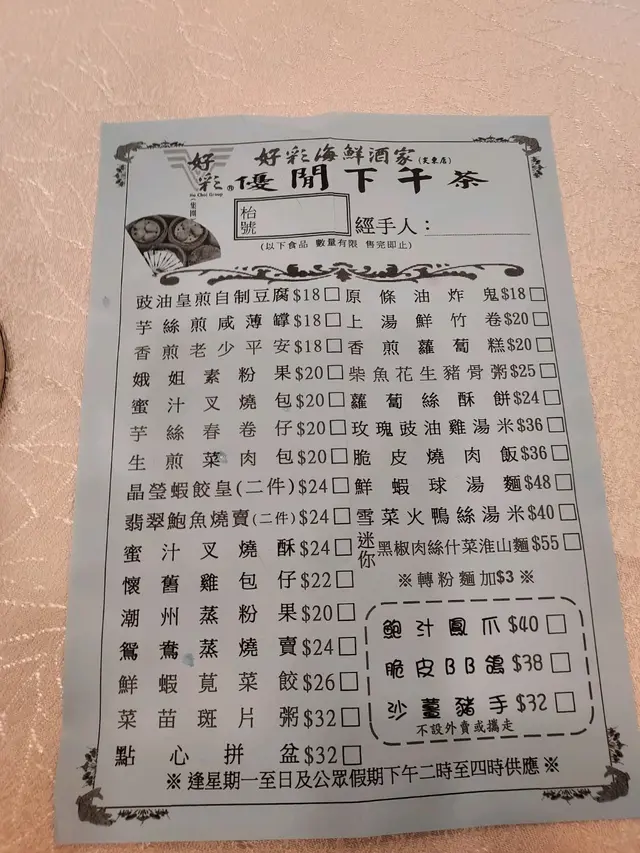 好彩
Ho Choi Group
(集團)
好彩海鮮酒家(芙東店)
優閒下午茶
枱號
經手人：
(以下食品 數量有限 售完即止)
豉油皇煎自制豆腐$18□
芋絲煎咸薄罉$18□
香煎老少平安$18□
娥姐素粉果$20□
蜜汁叉燒包$20□
芋絲春卷仔$20□
生煎菜肉包$20□
晶瑩蝦餃皇(二件)$24□
翡翠鮑魚燒賣(二件)$24□
蜜汁叉燒酥$24□
懷舊雞包仔$22□
潮州蒸粉果$20□
鴛鴦蒸燒賣$24□
鮮蝦莧菜餃$26□
菜苗斑片粥$32□
點心拼盆$32□
原條油炸鬼$18□
上湯鮮竹卷$20□
香煎蘿蔔糕$20□
柴魚花生豬骨粥$25□
蘿蔔絲酥餅$24□
玫瑰豉油雞湯米$36□
脆皮燒肉飯$36□
鮮蝦球湯麵$48□
雪菜火鴨絲湯米$40□
迷你黑椒肉絲什菜淮山麵$55□
※轉粉麵加$3※
鮑汁鳳爪$40□
脆皮BB鴿$38□
沙薑豬手$32□
不設外賣或攜走
※逢星期一至日及公眾假期下午二時至四時供應※